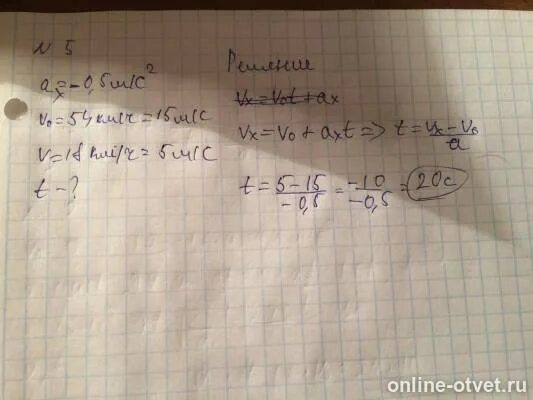 N 5
aₓ = -0,5 м/с²
v₀ = 54 км/ч = 15 м/с
v = 18 км/ч = 5 м/с
t - ?
Решение
vₓ = v₀t + aₓ
vₓ = v₀ + aₓt => t = (vₓ - v₀)/a
t = (5 - 15)/(-0,5) = (-10)/(-0,5) = 20с
online-otvet.ru